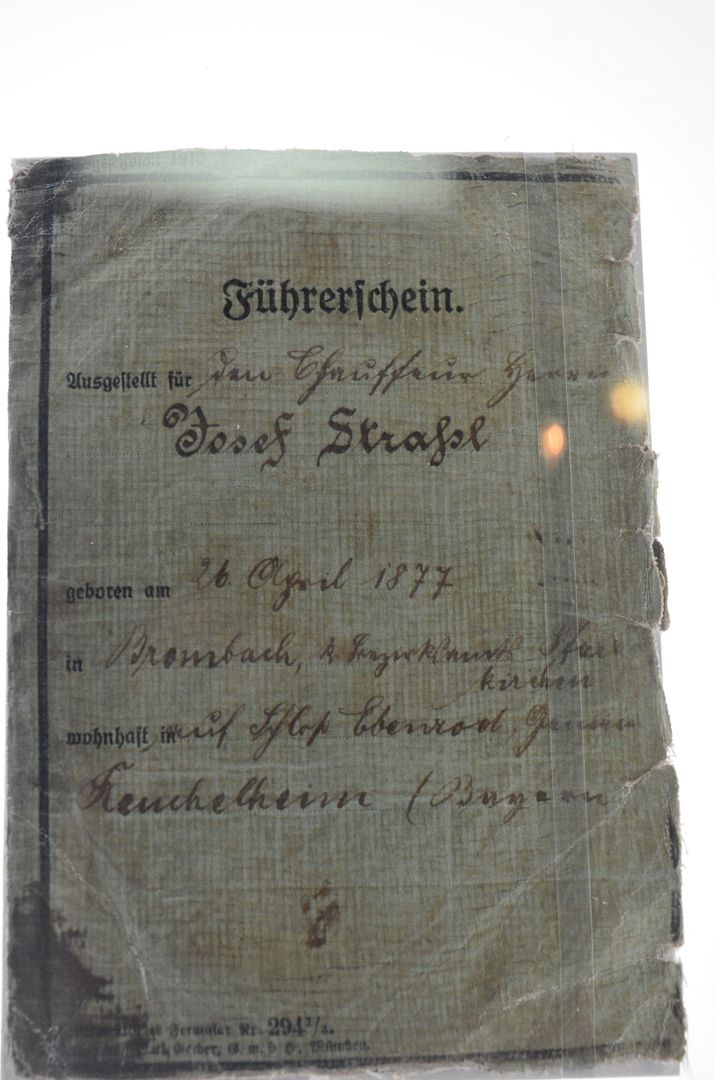 1910
Führerschein.
Ausgestellt für den Chauffeur Herrn
Josef Straßl
geboren am 26 April 1877
in Brombach, k Bezirksamts Pfarr
kirchen
wohnhaft in auf Schloß Ebenrod,
Heuchelheim (Bayern
Formular Nr. 294¹/a.
Gerber, G. m. b. H., München.